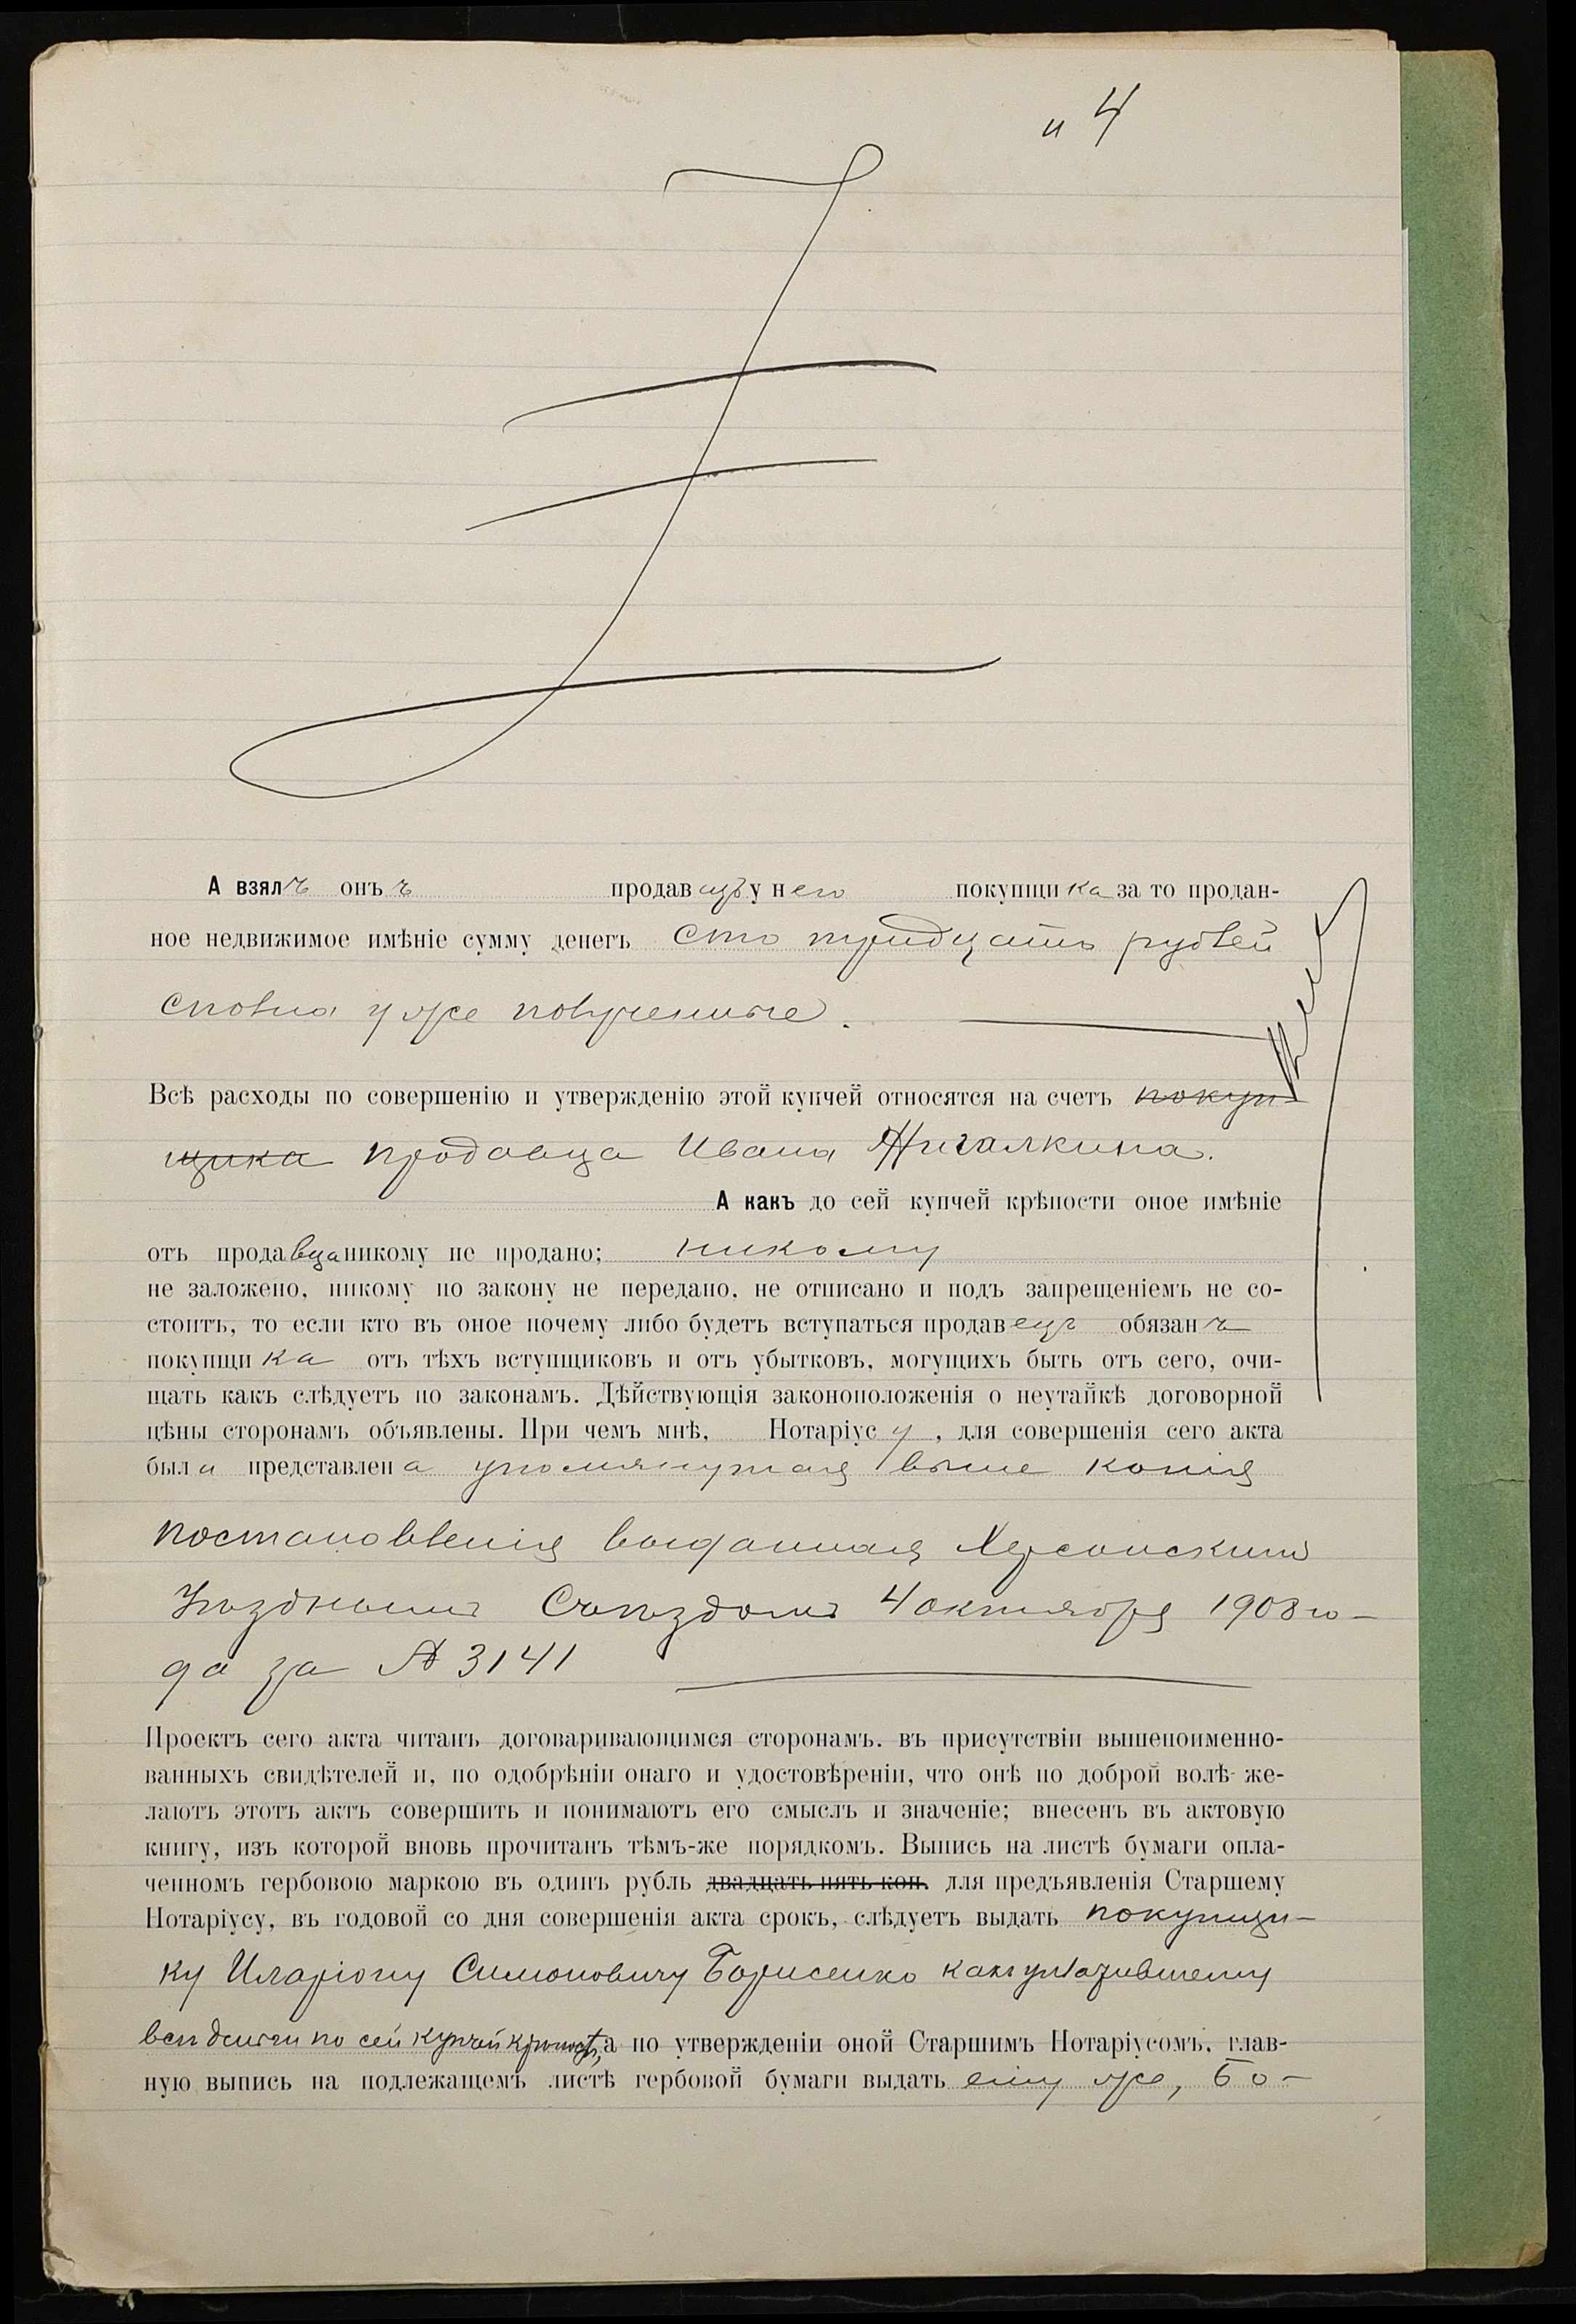 и 4
А взялъ онъ ъ продавецъ у него покупщика за то продан-
ное недвижимое имѣніе сумму денегъ сто тридцать рублей
сполна уже полученные.
Всѣ расходы по совершенію и утвержденію этой купчей относятся на счетъ покуп-
щика продавца Ивана Жигалкина.
А какъ до сей купчей крѣпости оное имѣніе
отъ продавца никому не продано; никому
не заложено, никому по закону не передано, не отписано и подъ запрещеніемъ не со-
стоитъ, то если кто въ оное почему либо будетъ вступаться продавецъ обязанъ
покупщика отъ тѣхъ вступщиковъ и отъ убытковъ, могущихъ быть отъ сего, очи-
щать какъ слѣдуетъ по законамъ. Дѣйствующія законоположенія о неутайкѣ договорной
цѣны сторонамъ объявлены. При чемъ мнѣ, Нотаріусу, для совершенія сего акта
была представлена упомянутая выше копія
постановленія выданная Херсонскимъ
Уѣзднымъ Съѣздомъ 4 октября 1908 го-
да за № 3141
Проектъ сего акта читанъ договаривающимся сторонамъ. въ присутствіи вышепоименно-
ванныхъ свидѣтелей и, по одобрѣніи онаго и удостовѣреніи, что онѣ по доброй волѣ же-
лаютъ этотъ актъ совершить и понимаютъ его смыслъ и значеніе; внесенъ въ актовую
книгу, изъ которой вновь прочитанъ тѣмъ-же порядкомъ. Выпись на листѣ бумаги опла-
ченномъ гербовою маркою въ одинъ рубль двадцать пять коп. для предъявленія Старшему
Нотаріусу, въ годовой со дня совершенія акта срокъ, слѣдуетъ выдать покупщи-
ку Иларіону Симоновичу Борисенко какъ уплатившему
всѣ деньги по сей купчей крѣпости, а по утвержденіи оной Старшимъ Нотаріусомъ, глав-
ную выпись на подлежащемъ листѣ гербовой бумаги выдать ему же, Бо-